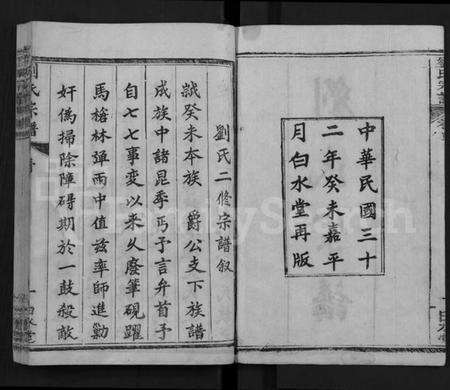 中華民國三十
二年癸未嘉平
月白水堂再版
劉氏二修宗譜叙
歲癸未本族 爵公支下族譜
成族中諸昆季丐予言弁首予
自七七事變以來久廢筆硯躍
馬槍林彈雨中值兹率師進勦
奸僞掃除障碍期於一鼓殺敵
劉氏宗譜
FamilySearch